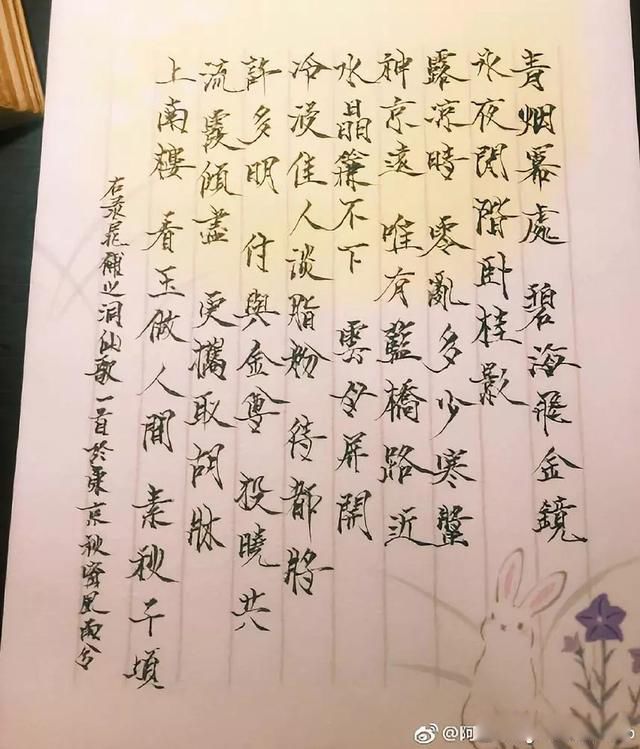 青烟冪處 碧海飛金鏡
永夜閑階卧桂影
露凉時 零亂多少寒螿
神京遠 唯有藍橋路近
水晶簾不下 雲母屏開
冷浸佳人談脂粉 待都將
許多明 付與金尊 投曉共
流霞傾盡 更攜取胡牀
上南樓 看玉做人間 素秋千頃
右录晁補之洞仙歌一首於東京秋窗風雨
阿